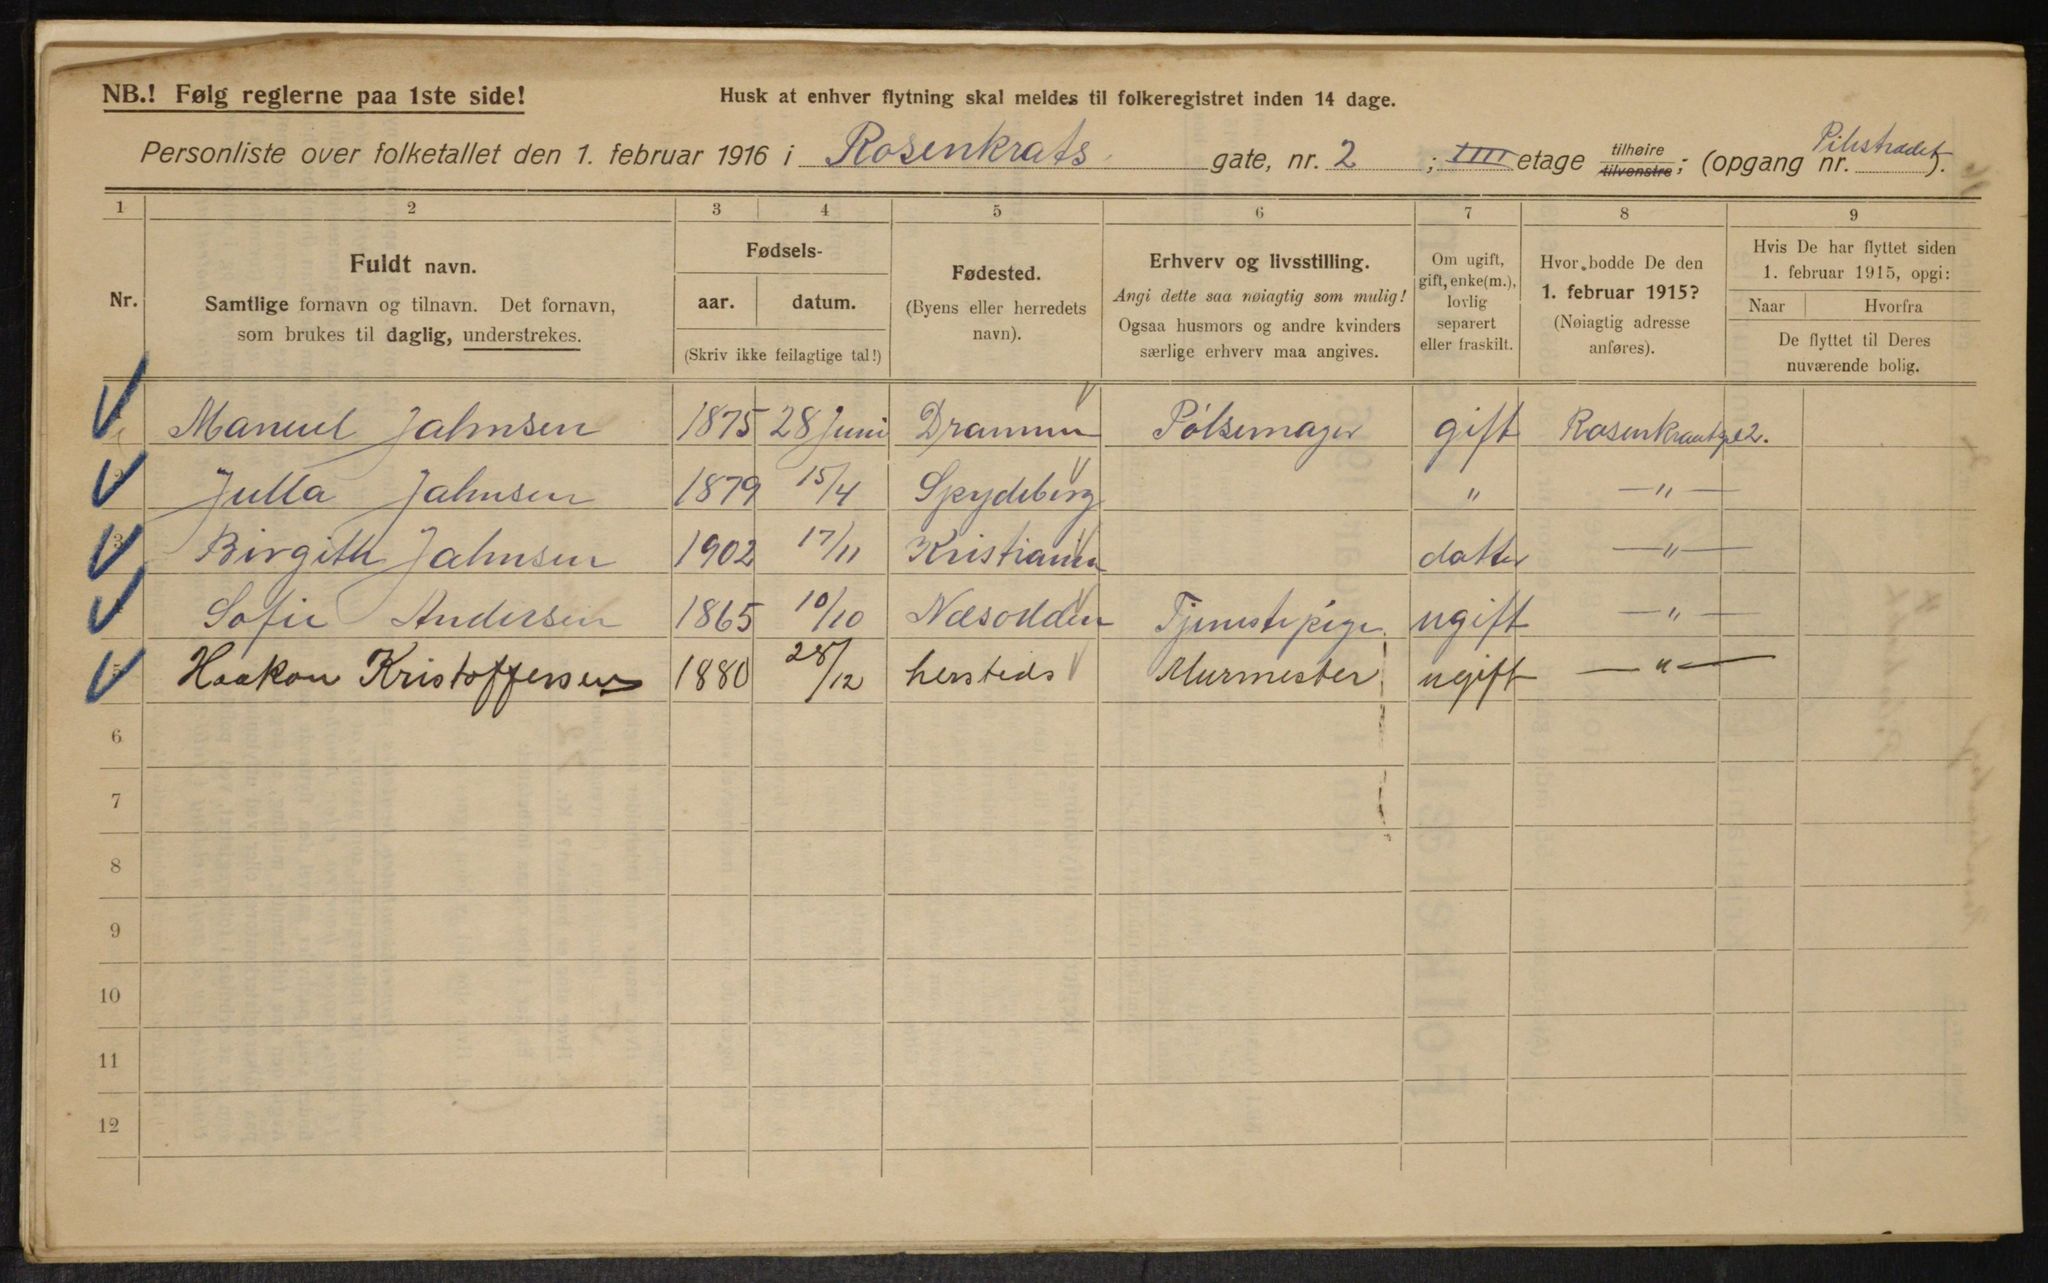 NB.! Følg reglerne paa 1ste side!
Husk at enhver flytning skal meldes til folkeregistret inden 14 dage.
Personliste over folketallet den 1. februar 1916 i Rosenkrats gate, nr. 2 ; IIII etage tilhøire tilvenstre ; (opgang nr. Pilestrædet).
1 2 3 4 5 6 7 8 9
Nr.
Fuldt navn.
Samtlige fornavn og tilnavn. Det fornavn,
som brukes til daglig, understrekes.
Fødsels-
aar. datum.
(Skriv ikke feilagtige tal!)
Fødested.
(Byens eller herredets
navn).
Erhverv og livsstilling.
Angi dette saa nøiagtig som mulig!
Ogsaa husmors og andre kvinders
særlige erhverv maa angives.
Om ugift,
gift, enke(m.),
lovlig
separert
eller fraskilt.
Hvor bodde De den
1. februar 1915?
(Nøiagtig adresse
anføres).
Hvis De har flyttet siden
1. februar 1915, opgi:
Naar Hvorfra
De flyttet til Deres
nuværende bolig.
Manuel Jahnsen 1875 28 Juni Drammen Pølsemager gift Rosenkrantzg 2.
Julla Jahnsen 1879 15/4 Spydeberg " —"—
3 Birgith Jahnsen 1902 17/11 Kristiania datter —"—
Sofie Andersen 1865 10/10 Næsodden Tjenestepige ugift —"—
5 Haakon Kristoffersen 1880 28/12 hersteds Murmester ugift —"—
6
7
8
9
10
11
12